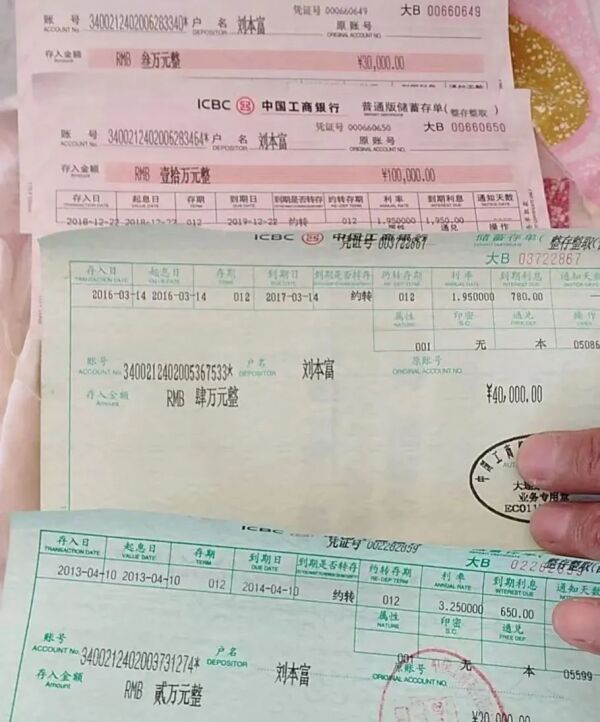 凭证号 000660649 大B 00660649
账 号 ACCOUNT No. 3400212402006283340* 户 名 DEPOSITOR 刘本富 原账号 ORIGINAL ACCOUNT NO.
存入金额 Amount RMB 叁万元整 ¥30,000.00
ICBC 中国工商银行 普通版储蓄存单(整存整取)
凭证号 000660650 大B 00660650
账 号 ACCOUNT No. 3400212402006283464* 户 名 DEPOSITOR 刘本富 原账号 ORIGINAL ACCOUNT NO.
存入金额 Amount RMB 壹拾万元整 ¥100,000.00
存入日 起息日 存期 到期日 到期是否转存 约转存期 利率 到期利息 通知天数
TRANSACTION DATE VALUE DATE TERM DUE DATE RE-DEP TERM ANNUAL RATE INTEREST DUE
2018-12-22 2018-12-22 012 2019-12-22 约转 012 1.950000 1,950.00
ICBC 中国工商银行 凭证号 003722867 储蓄存单( 整存整取
大B 03722867
存入日 起息日 存期 到期日 到期是否转存 约转存期 利率 到期利息 通知天
TRANSACTION DATE VALUE DATE TERM DUE DATE RE-DEP TERM ANNUAL RATE INTEREST DUE
2016-03-14 2016-03-14 012 2017-03-14 约转 012 1.950000 780.00
属性 印密 通兑 操作
NATURE S.C FREE DEP
001 无 本 05086
账号 ACCOUNT No. 3400212402005367533* 户名 DEPOSITOR 刘本富 原账号 ORIGINAL ACCOUNT NO.
存入金额 Amount RMB 肆万元整 ¥40,000.00
中国工商
业务专用章
ICBC 凭证号 002282859 整存整取
大B
存入日 起息日 存期 到期日 到期是否转存 约转存期 利率 到期利息 通知天数
TRANSACTION DATE VALUE DATE TERM DUE DATE RE-DEP TERM ANNUAL RATE INTEREST DUE
2013-04-10 2013-04-10 012 2014-04-10 约转 012 3.250000 650.00
属性 印密 通兑
NATURE S.C FREE DEP
001 无 本 05599
账号 ACCOUNT No. 3400212402003731274* 户名 DEPOSITOR 刘本富 原账号 ORIGINAL ACCOUNT NO.
存入金额 Amount RMB 贰万元整 ¥20,000.00